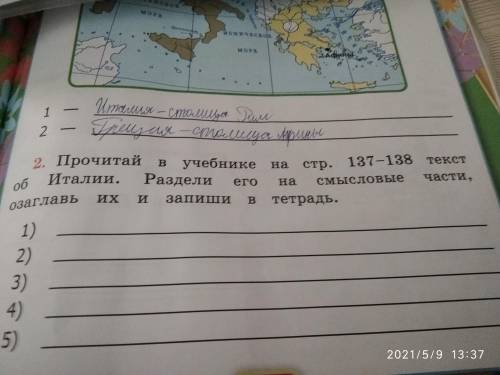 МОРЕ
ИОНИЧЕСКОЕ
МОРЕ
Афины
1 — Италия – столица Рим
2 — Греция – столица Афины
2. Прочитай в учебнике на стр. 137–138 текст
об Италии. Раздели его на смысловые части,
озаглавь их и запиши в тетрадь.
1)
2)
3)
4)
5)
2021/5/9 13:37